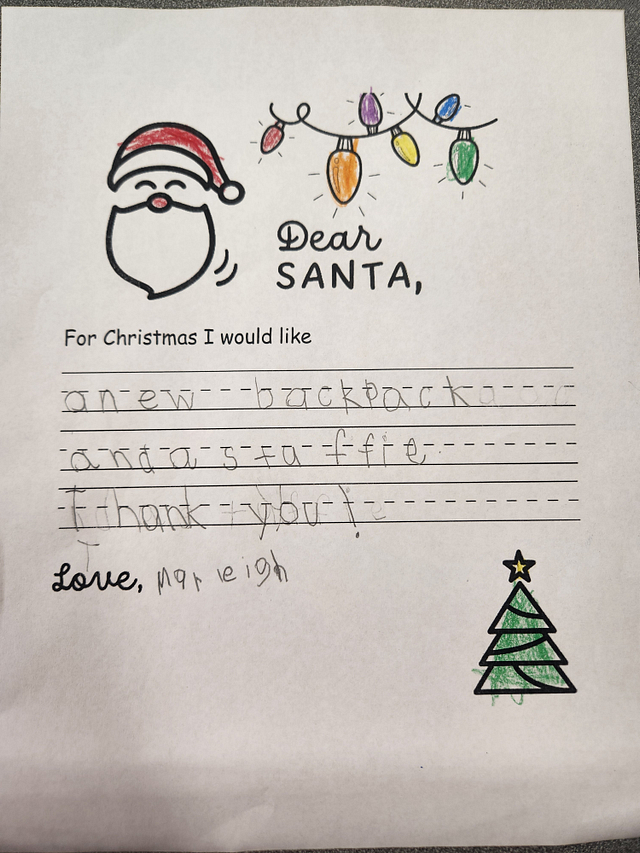 Dear
SANTA,
For Christmas I would like
a new backpack
and a stuffie
Thank you!
Love, Marleigh